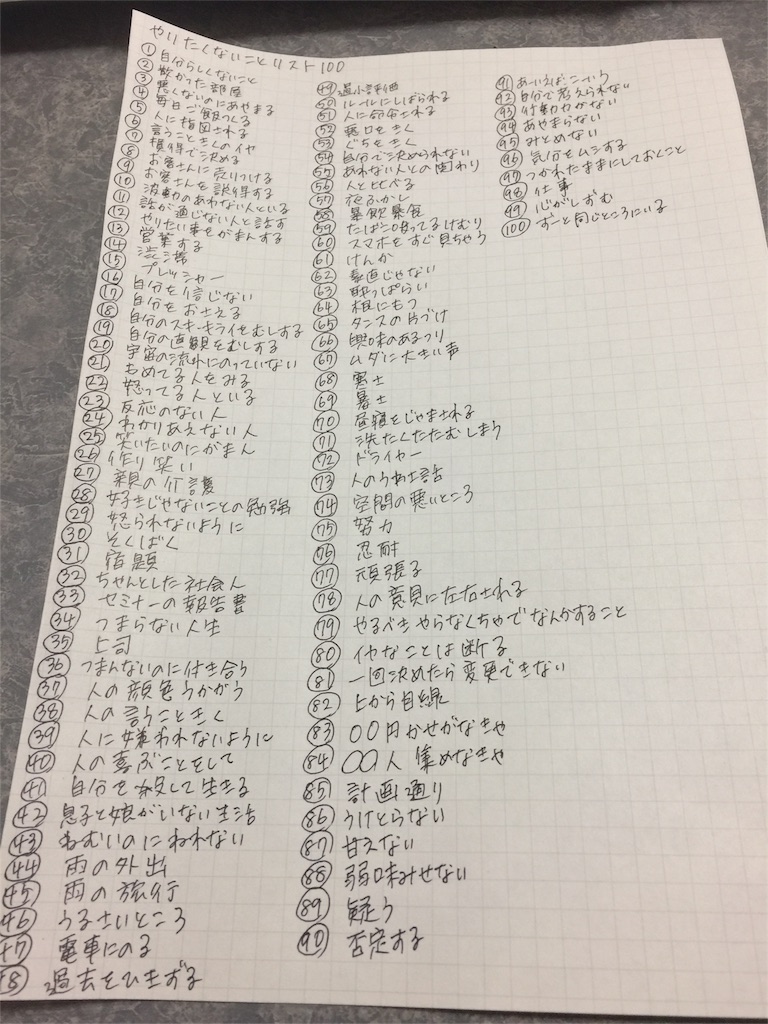 やりたくないことリスト100
① 自分らしくないこと
② 散かった部屋
③ 悪くないのにあやまる
④ 毎日ご飯つくる
⑤ 人に指図される
⑥ 言うこときくのイヤ
⑦ 損得で決める
⑧ お客さんに売りつける
⑨ お客さんを説得する
⑩ 波動のあわない人といる
⑪ 話が通じない人と話す
⑫ やりたい事をがまんする
⑬ 営業する
⑭ 渋滞
⑮ プレッシャー
⑯ 自分を信じない
⑰ 自分をおさえる
⑱ 自分のスキーキライをむしする
⑲ 自分の直観をむしする
⑳ 宇宙の流れにのっていない
㉑ もめてる人をみる
㉒ 怒ってる人といる
㉓ 反応のない人
㉔ わかりあえない人
㉕ 笑いたいのにがまん
㉖ 作り笑い
㉗ 親の介護
㉘ 好きじゃないことの勉強
㉙ 怒られないように
㉚ そくばく
㉛ 宿題
㉜ ちゃんとした社会人
㉝ セミナーの報告書
㉞ つまらない人生
㉟ 上司
㊱ つまんないのに付き合う
㊲ 人の顔色うかがう
㊳ 人の言うこときく
㊴ 人に嫌われないように
㊵ 人の喜ぶことをして
㊶ 自分を殺して生きる
㊷ 息子と娘がいない生活
㊸ ねむいのにねれない
㊹ 雨の外出
㊺ 雨の旅行
㊻ うるさいところ
㊼ 電車にのる
㊽ 過去をひきずる
㊾ 過小評価
㊿ ルールにしばられる
51 人に命令される
52 悪口をきく
53 ぐちをきく
54 自分で決められない
55 あわない人との関わり
56 人と比べる
57 夜ふかし
58 暴飲暴食
59 たばこ吸ってるけむり
60 スマホをすぐ見ちゃう
61 けんか
62 素直じゃない
63 酔っぱらい
64 根にもつ
65 タンスの片づけ
66 興味のあるフリ
67 ムダに大きい声
68 寒
69 暑
70 昼寝をじゃまされる
71 洗たくたたむしまう
72 ドライヤー
73 人のうわさ話
74 空間の悪いところ
75 努力
76 忍耐
77 頑張る
78 人の意見に左右される
79 やるべきやらなくちゃでなんかすること
80 イヤなことは断る
81 一回決めたら変更できない
82 上から目線
83 〇〇円かせがなきゃ
84 〇〇人集めなきゃ
85 計画通り
86 うけとらない
87 甘えない
88 弱味みせない
89 疑う
90 否定する
91 あーいえばこーいう
92 自分で考えられない
93 行動力がない
94 あやまらない
95 みとめない
96 気分をムシする
97 つかれたままにしておくこと
98 仕事
99 心がしずむ
100 ずーと同じところにいる